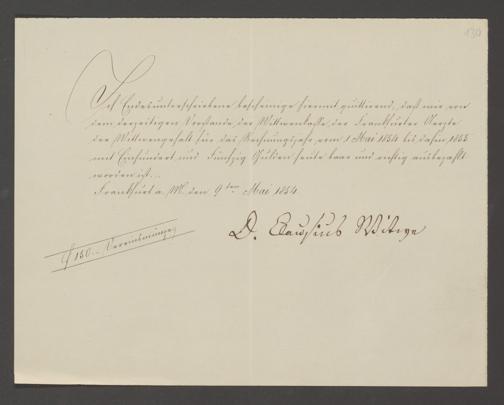 130
Ich Endesunterschriebene bescheinige hiermit quittirend, daß mir von
dem derzeitigen Vorstande der Wittwenkasse der Frankfurter Aerzte
der Wittwengehalt für das Rechnungsjahr vom 1 Mai 1854 bis dahin 1855
mit Einhundert und Fünfzig Gulden heute baar und richtig ausbezahlt
worden ist.
Frankfurt a. M. den 9ten Mai 1854
D. Witwe
f 150.- Vereinsmünze